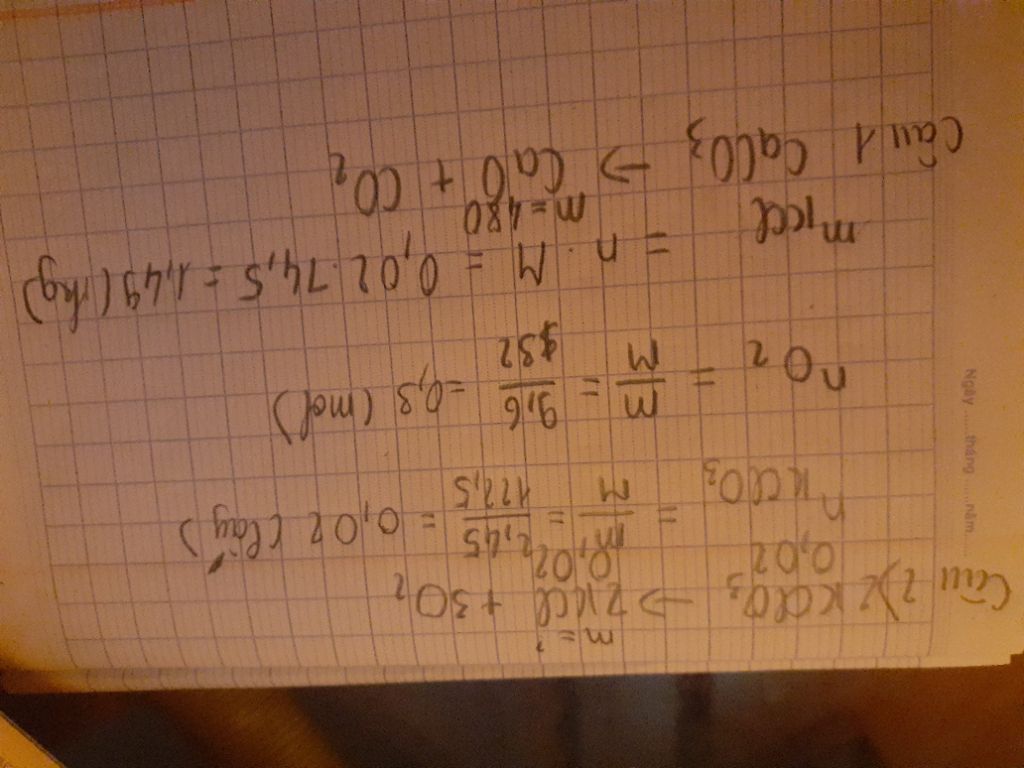 Câu 2) 2KClO3 → 2KCl + 3O2
m = ?
0,02 0,02
nKClO3 = m/M = 2,45/122,5 = 0,02 (lấy)
nO2 = m/M = 9,6/32 = 0,3 (mol)
mKCl = n . M = 0,02 . 74,5 = 1,49 (kg)
m = 480
Câu 1 CaCO3 → CaO + CO2
Ngày ..... tháng ..... năm .....